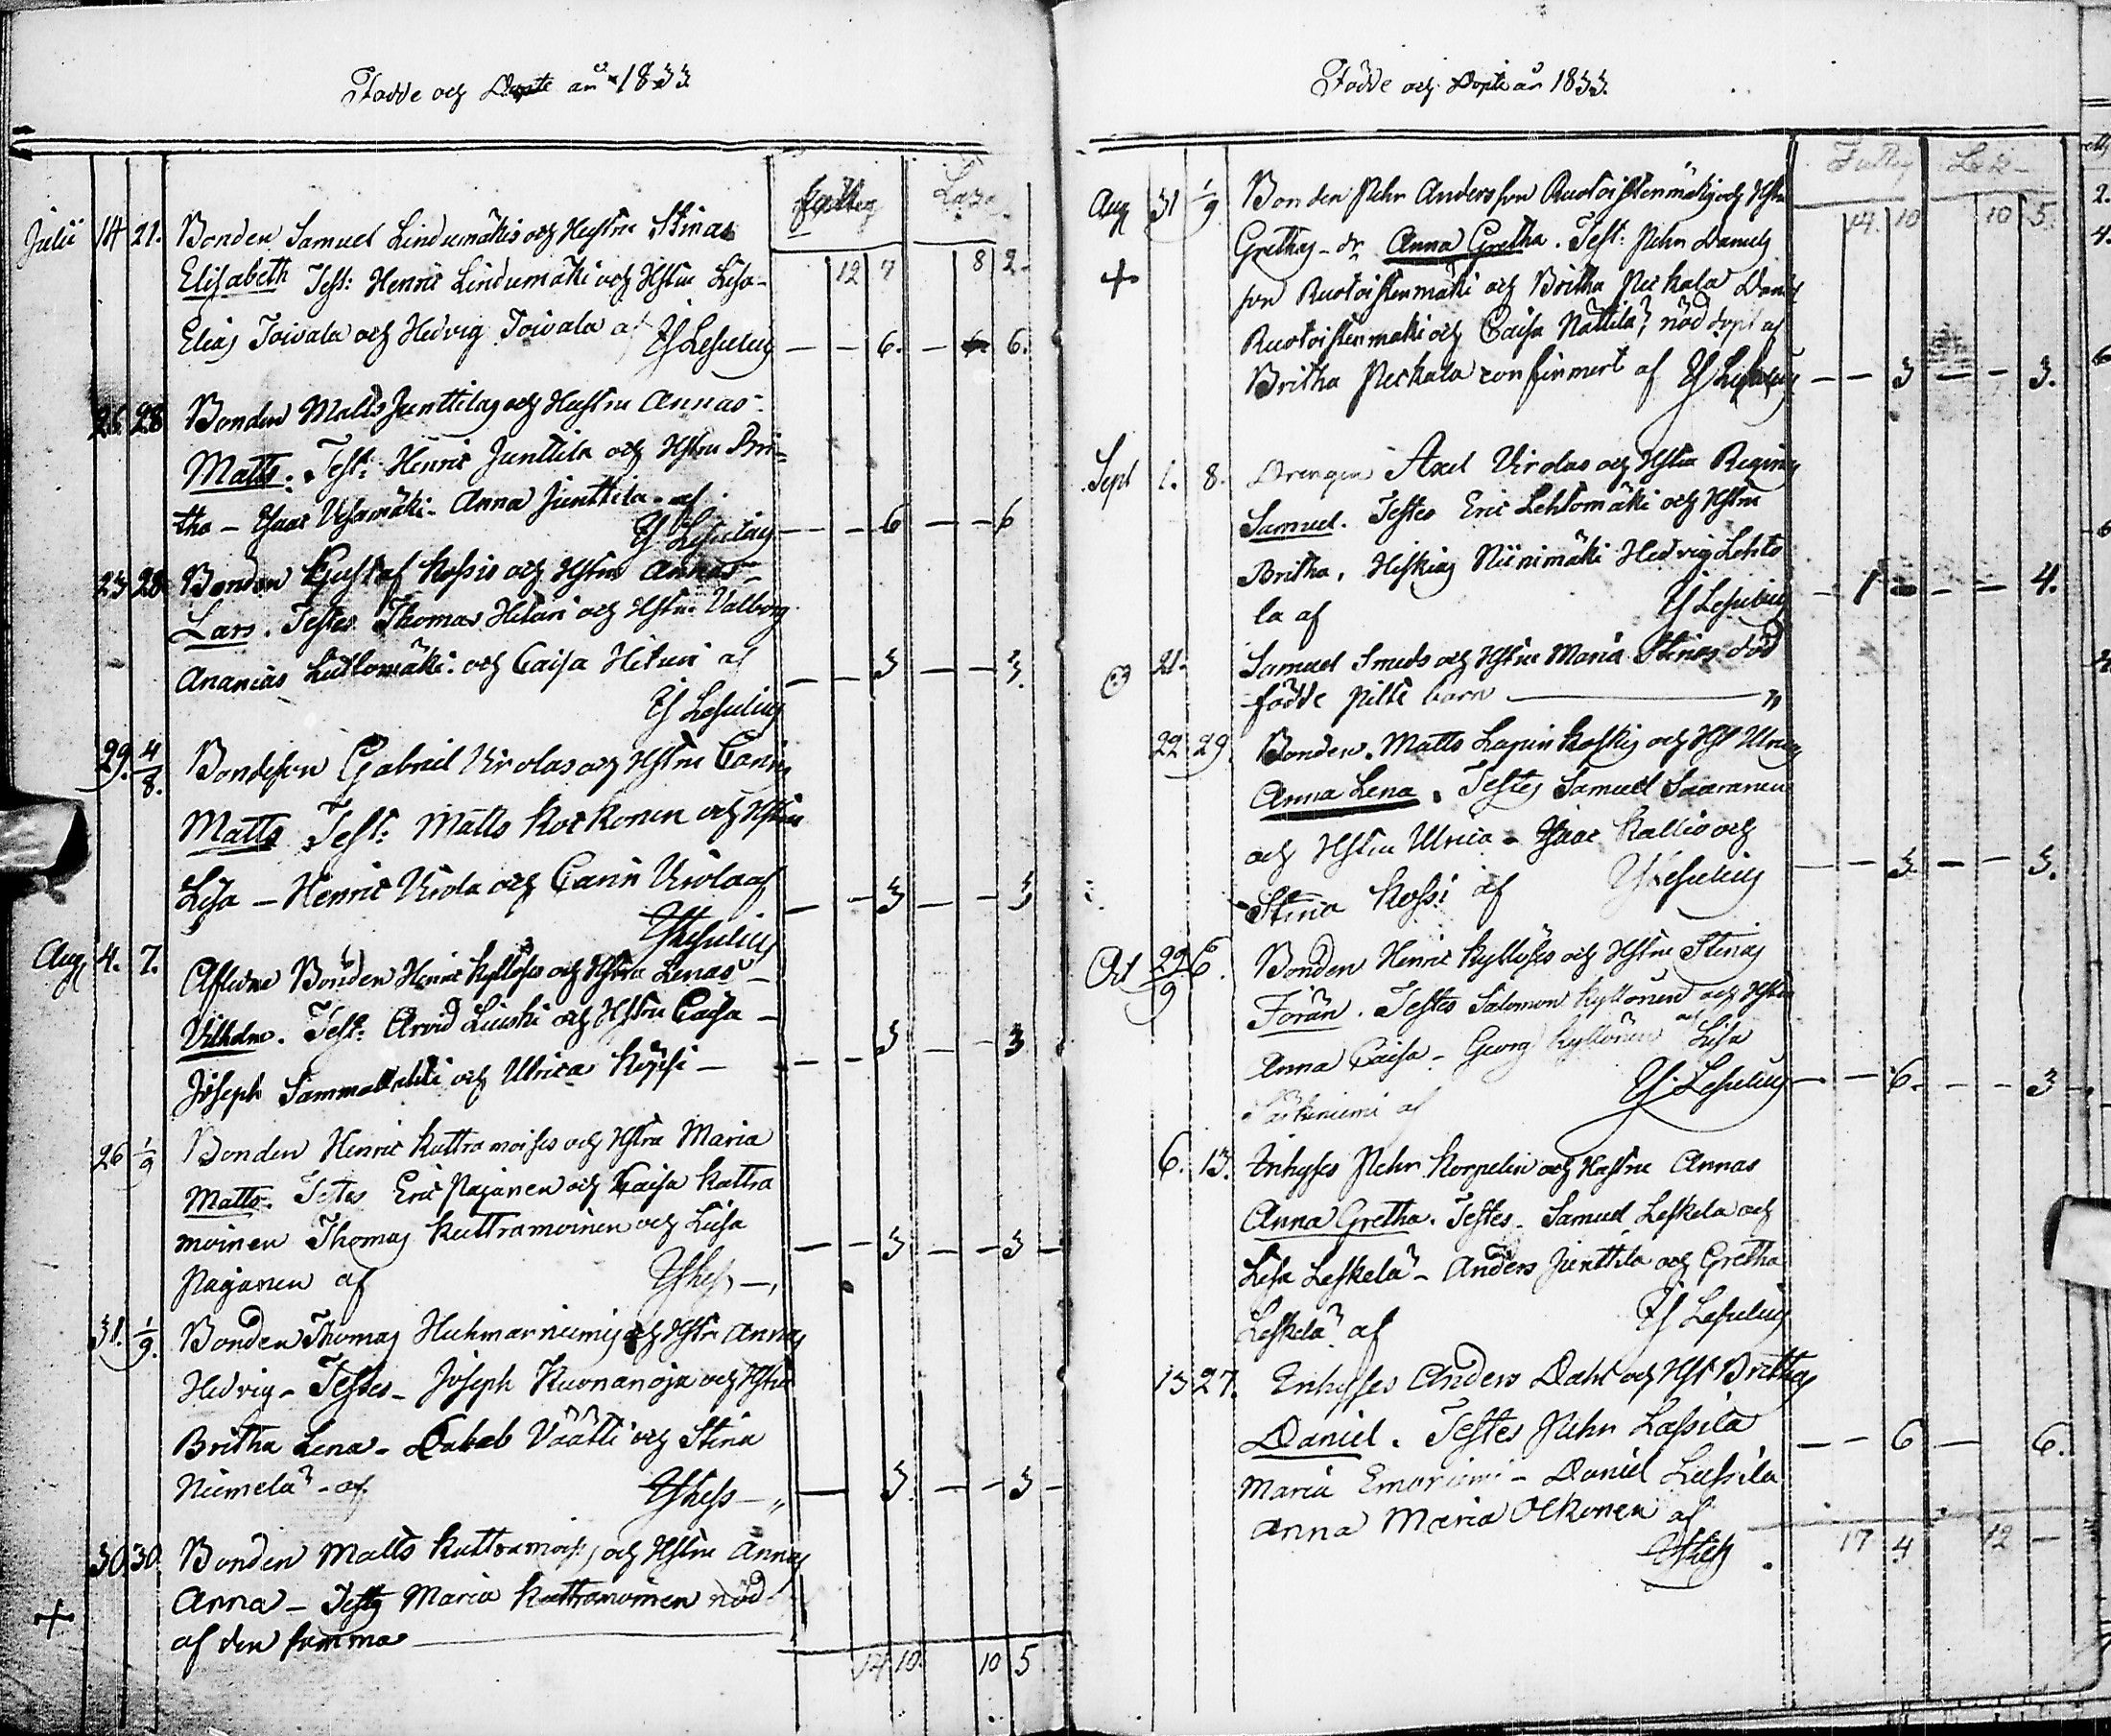 Födde och Döpte år 1833
Fattig Laza
Julii 14 21. Bonden Samuel Lindumäkis och Hustru Stinas
12 7 8 2
Elisabeth Test: Henric Lindumäki och Hstru Lisa-
Elias Toivala och Hedvig Toivala af EJ Lesulius — — 6. — 6.
26 28 Bonden Matts Junttilas och Hustru Annas
Matts. Test: Henric Junttila och Hstru Bri=
tha – Isaac Ustamäki- Anna Junttila- af
EJ Lesulius — — 6 — — 6
23 28 Bonden Gustaf Kossis och Hstru Annas
Lars. Testes Thomas Hituri och Hstru Valborg
Ananias Lutlomäki och Caisa Hituri af — 3 — 3.
EJ Lesulius
29. 4/8. Bondeson Gabriel Virolas och Hstru Carins
Matts Test: Matts Korkonen och Hstru
Lisa – Henric Virola och Carin Virola af — — 3 — — 3
EJ Lesulius
Aug 4. 7. Afledne Bonden Henric Kyllöses och Hstru Lenas
Vilhelm. Test: Arvid Liuski och Hstru Caisa –
Joseph Sammallahti och Ulrica — — — 3 — 3
26 1/9 Bonden Henric Kuttramoises och Hstru Maria
Matts. Testes Eric Pajanen och Caisa Kuttra
moinen Thomas Kuttramoinen och Luisa — — 3 — — 3 —
Pajanen af EJ Les —,
31. 1/9. Bonden Thomas Huhmarniemis och Hstr Annas
Hedvig – Testes – Joseph Kuonanoja och Hstru
Britha Lena – Väätti och Stina
Niemelä – af EJ Less — „ — 3. — — 3 —
30 30. Bonden Matts Kuttramois och Hstru Annas
Anna – Testes Maria Kuttramoinen nöd
+ af den samma —
14 10. 10 5
Födde och Döpte år 1833.
Fattig Laza
Aug 31 1/9 Bonden Pehr Andersson Ruotoistenmäkis och Hstru
14. 10 10 5.
Grethas – dr Anna Gretha. Test: Pehr Daniels
+ son Ruotoistenmäki och Britha Peckala Daniel
Ruotoistenmäki och Caisa Nättilä, nöd döpt af
Britha Peckala confirmert af EJ Lesulius — — 3 — — 3.
Sept 1. 8. Drengen Axel Virolas och Hstru Reginas
Samuel. Testes Eric Lehtomäki och Hstru
Britha, Hiskias Niinimäki Hedvig Lehto
la af EJ Lesulius — 1 — — — 4.
21. Samuel Smeds och Hstru Maria Stinas död
födde pilte barn — „
22 29 Bonden Matts Lapin Koskis och Hst Ulricas
Anna Lena. Testes Samuel Saaranen
och Hstru Ulrica – Isaac Kallio och
Stina Kossi af EJ Lesulius — — 3. — — 3.
Oct 29/9 6. Bonden Henric Kyllöses och Hstru Stinas
Förän. Testes Salomon Kyllönen och Hstru
Anna Caisa – Georg Kyllönen och Lisa
Särkiniemi af EJ Lesulius — — 6. — — 3 —
6. 13. Inhyses Pehr Korpelin och Hustru Annas
Anna Gretha. Testes – Samuel Leskela och
Lisa Leskelä – Anders Junttila och Gretha
Leskelä af EJ Lesulius
13 27. Enhyses Anders Dahl och Hst Brithas
Daniel. Testes Pehr Lassila — — 6 — 6.
Maria – Daniel Lassila
Anna Maria Olkonen af
EJ Less.
17 4 12 —